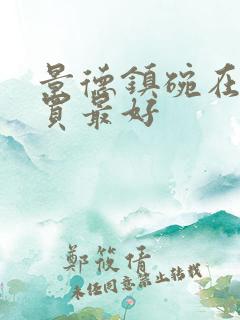 景德鎮碗在
買最好
鄭筱倩
未经同意禁止转载